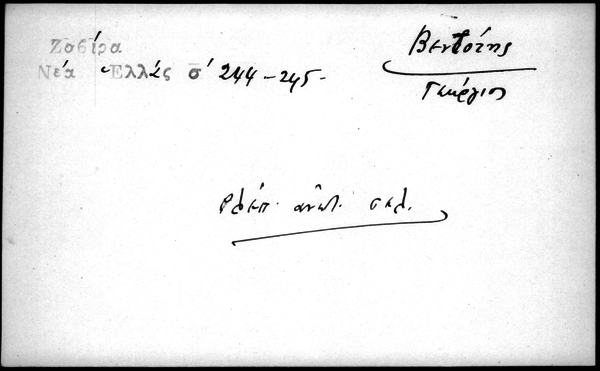 Ζαβίρα
Νέα Ἑλλάς σ' 244-245-
Βεντότης
Γεώργιος
βλέπ. ἀνωτ. σελ.